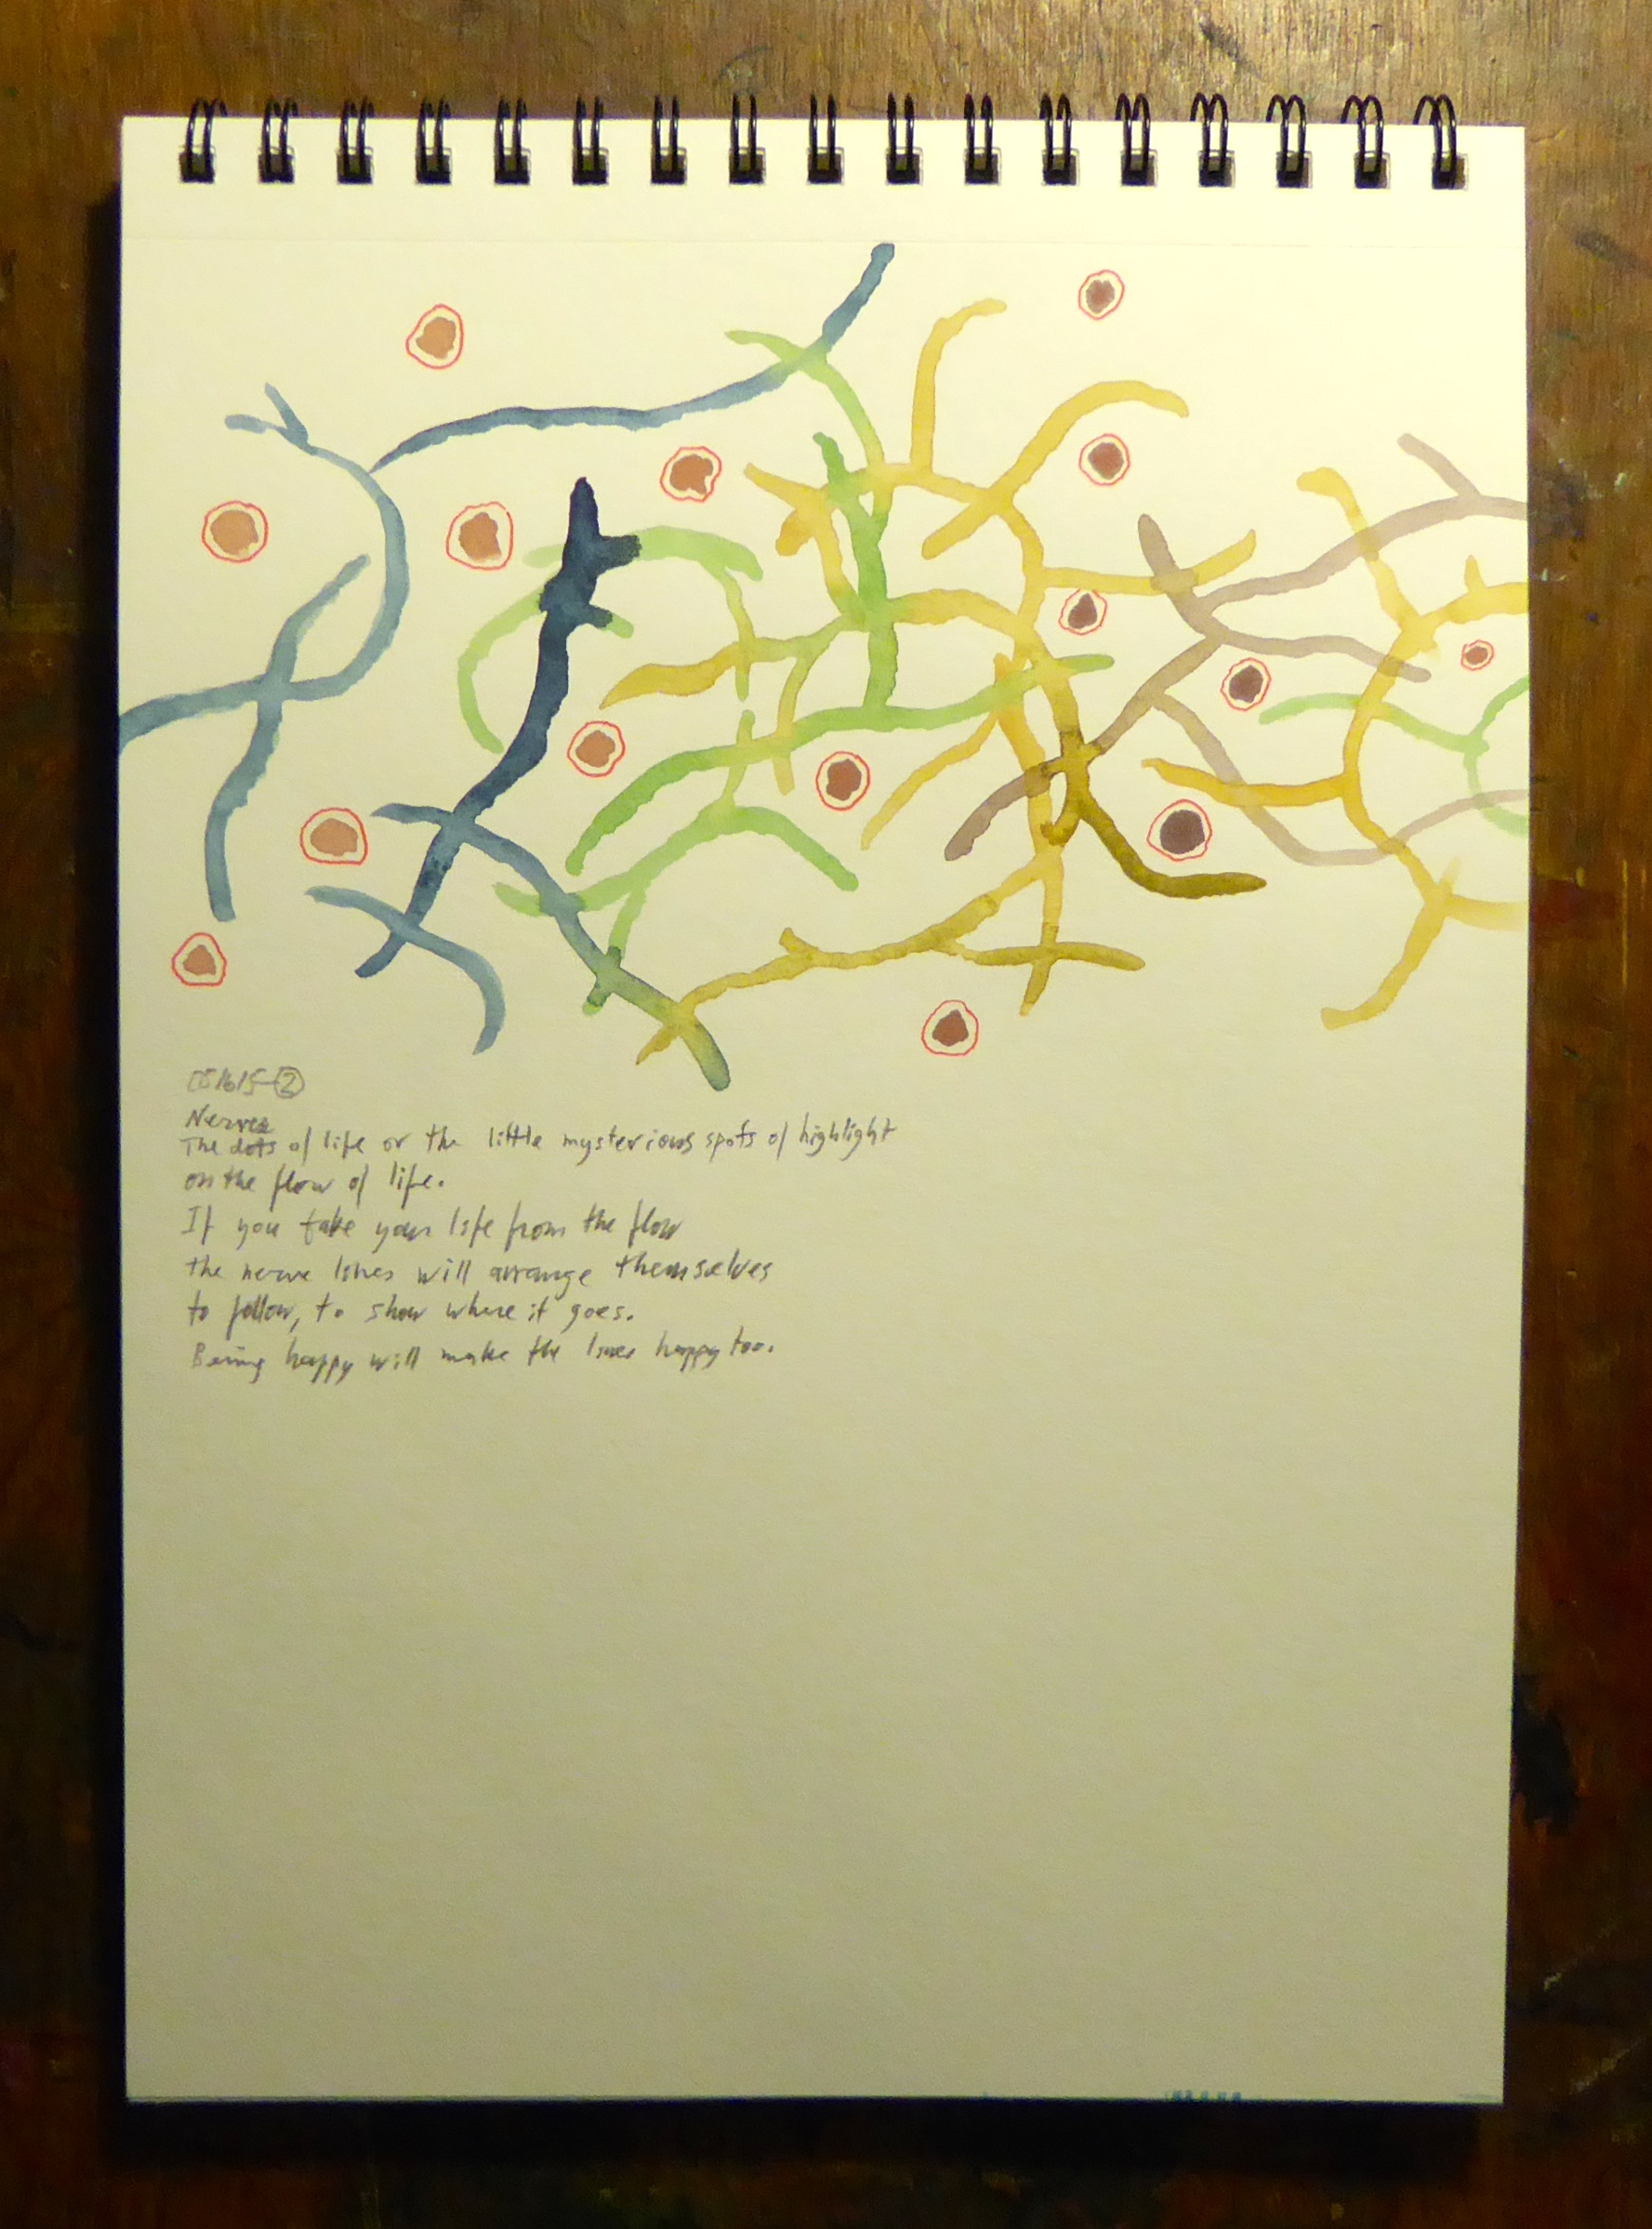 051615-②
Nerves
The dots of life or the little mysterious spots of highlight
on the flow of life.
If you take your life from the flow
the nerve lines will arrange themselves
to follow, to show where it goes.
Being happy will make the lines happy too.